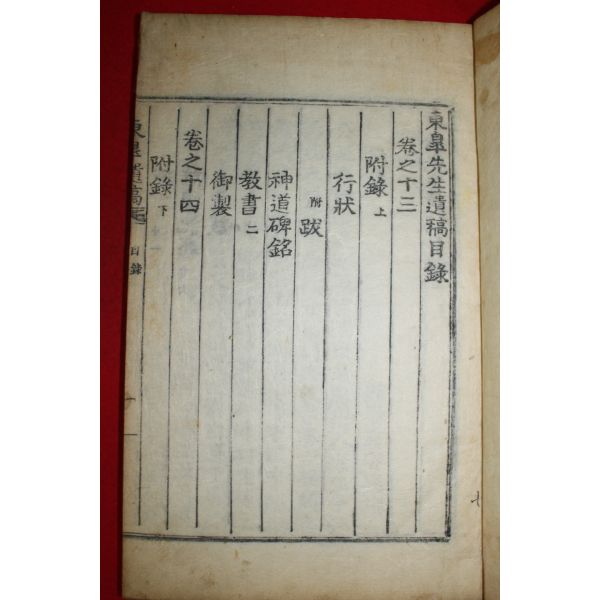 東皐先生遺稿目錄
卷之十三
附錄 上
行狀
附 跋
神道碑銘
教書 二
御製
卷之十四
附錄 下
東皐遺稿 目錄 一
七